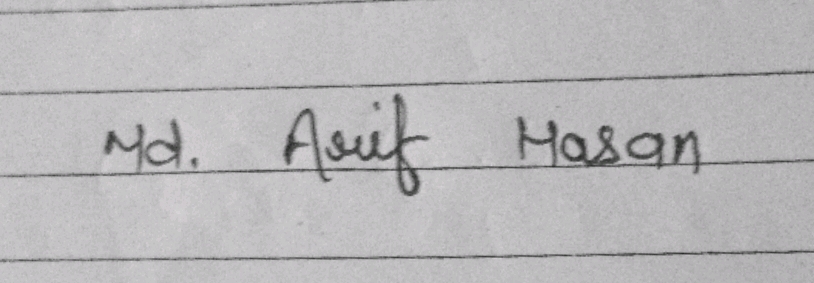 Md. Arif Hasan